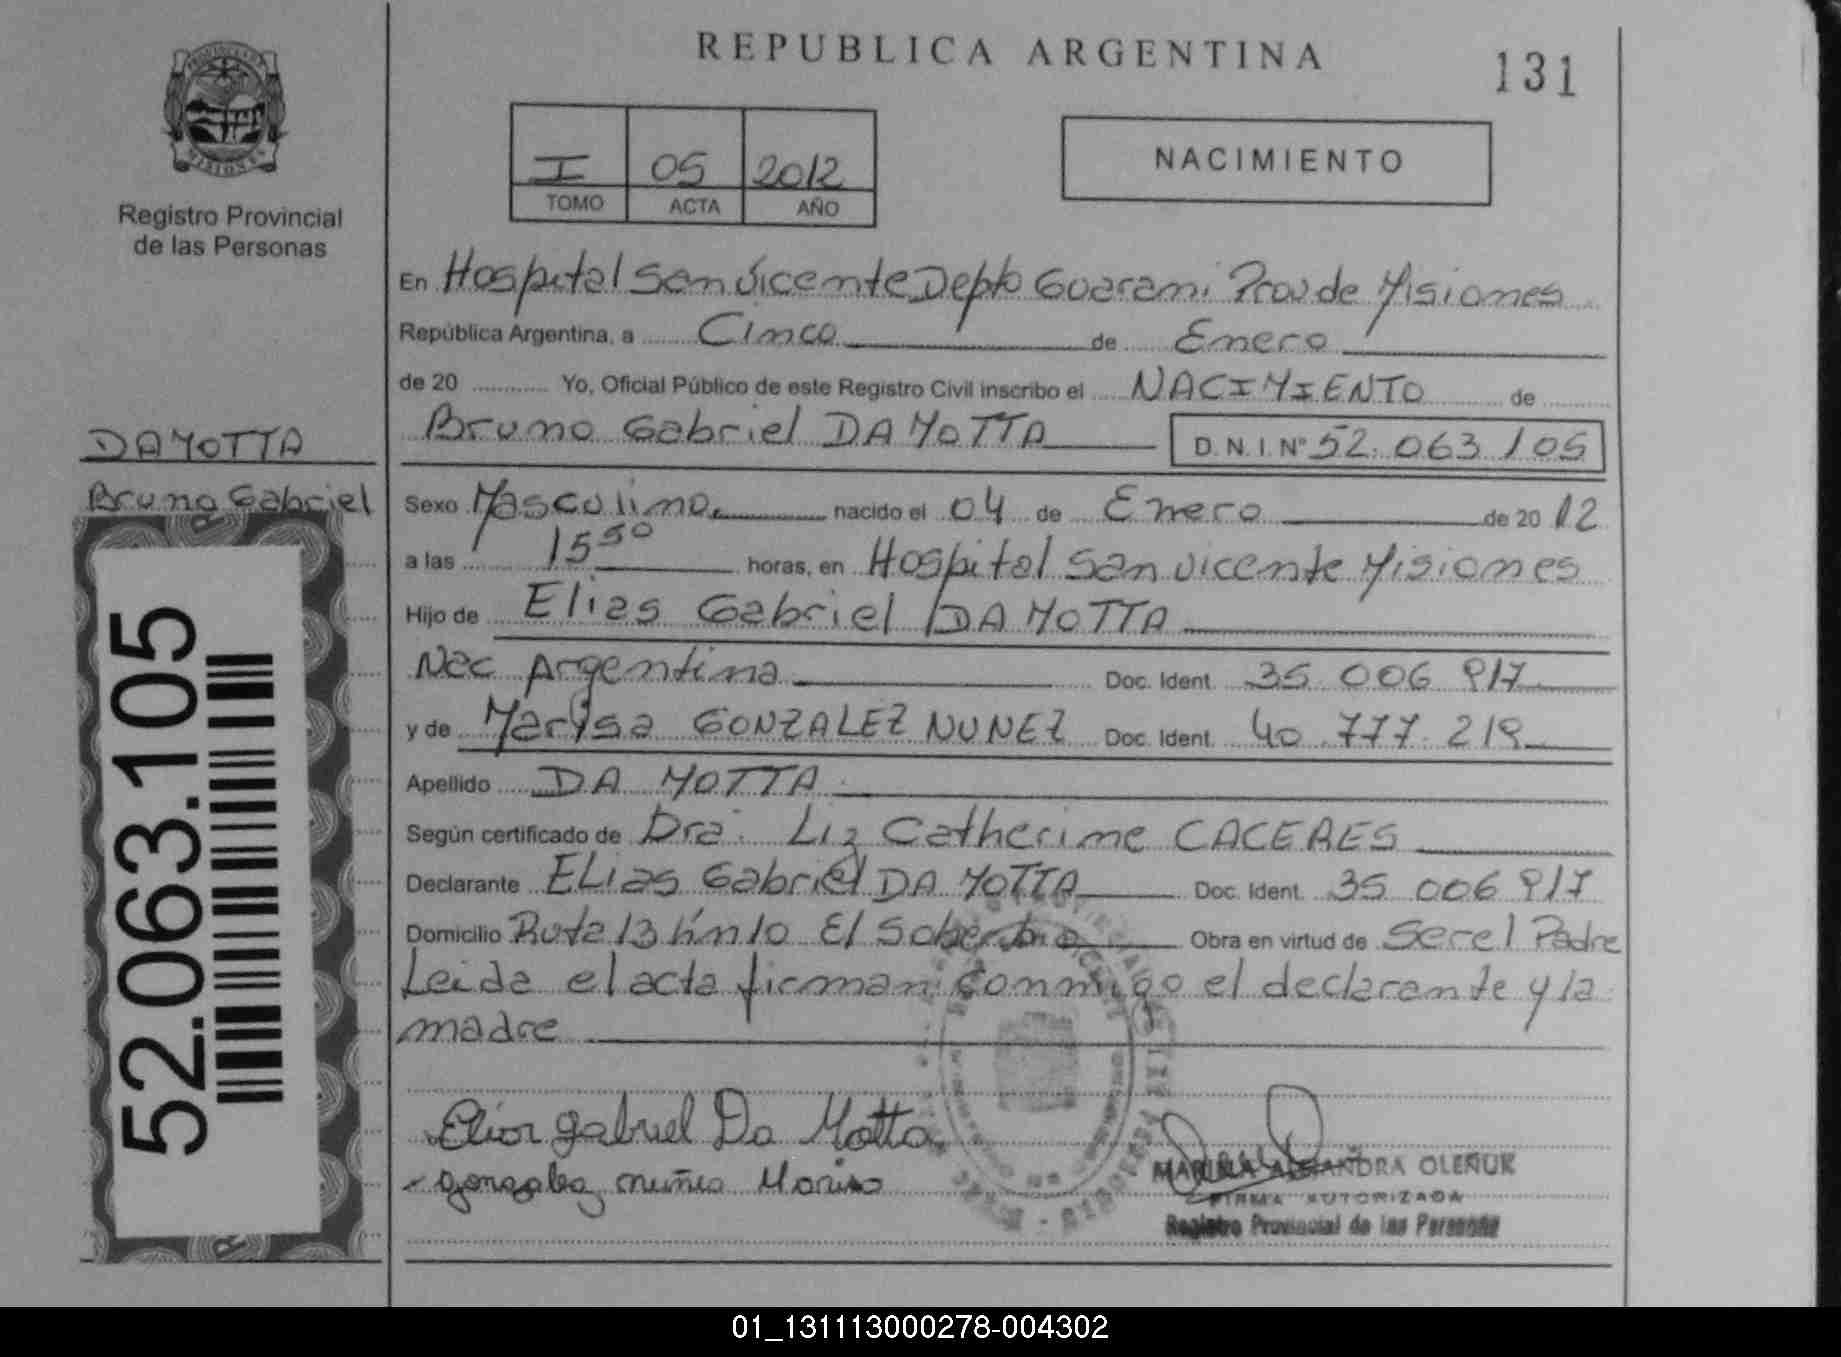 REPUBLICA ARGENTINA
131
PROVINCIA DE
MISIONES
Registro Provincial
de las Personas
I 05 2012
TOMO ACTA AÑO
NACIMIENTO
En Hospital San Vicente Depto Guarani Prov de Misiones
República Argentina, a Cinco de Enero
de 20 Yo, Oficial Público de este Registro Civil inscribo el NACIMIENTO de
Bruno Gabriel DA MOTTA D.N.I. Nº 52.063.105
DA MOTTA
Bruno Gabriel
52.063.105
Sexo Masculino. nacido el 04 de Enero de 2012
a las 15 50 horas, en Hospital San Vicente Misiones
Hijo de Elias Gabriel DA MOTTA
Nac Argentina Doc. Ident. 35 006 917
y de Marisa GONZALEZ NUNEZ Doc. Ident. 40.777.219
Apellido DA MOTTA
Según certificado de Dra. Liz Catherine CACERES
Declarante ELias Gabriel DA MOTTA Doc. Ident. 35 006 917
Domicilio Ruta 13 km 10 El Soberbio Obra en virtud de Ser el Padre
Leida el acta firman conmigo el declarante y la
madre
Elias gabriel Da Motta
gonzalez nuñes Marisa
ALEJANDRA OLENUK
FIRMA AUTORIZADA
Registro Provincial de las Personas
01_131113000278-004302